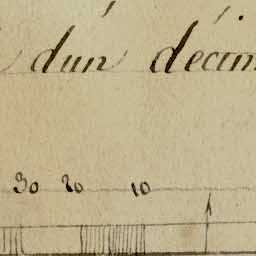 dún décim
30 20 10